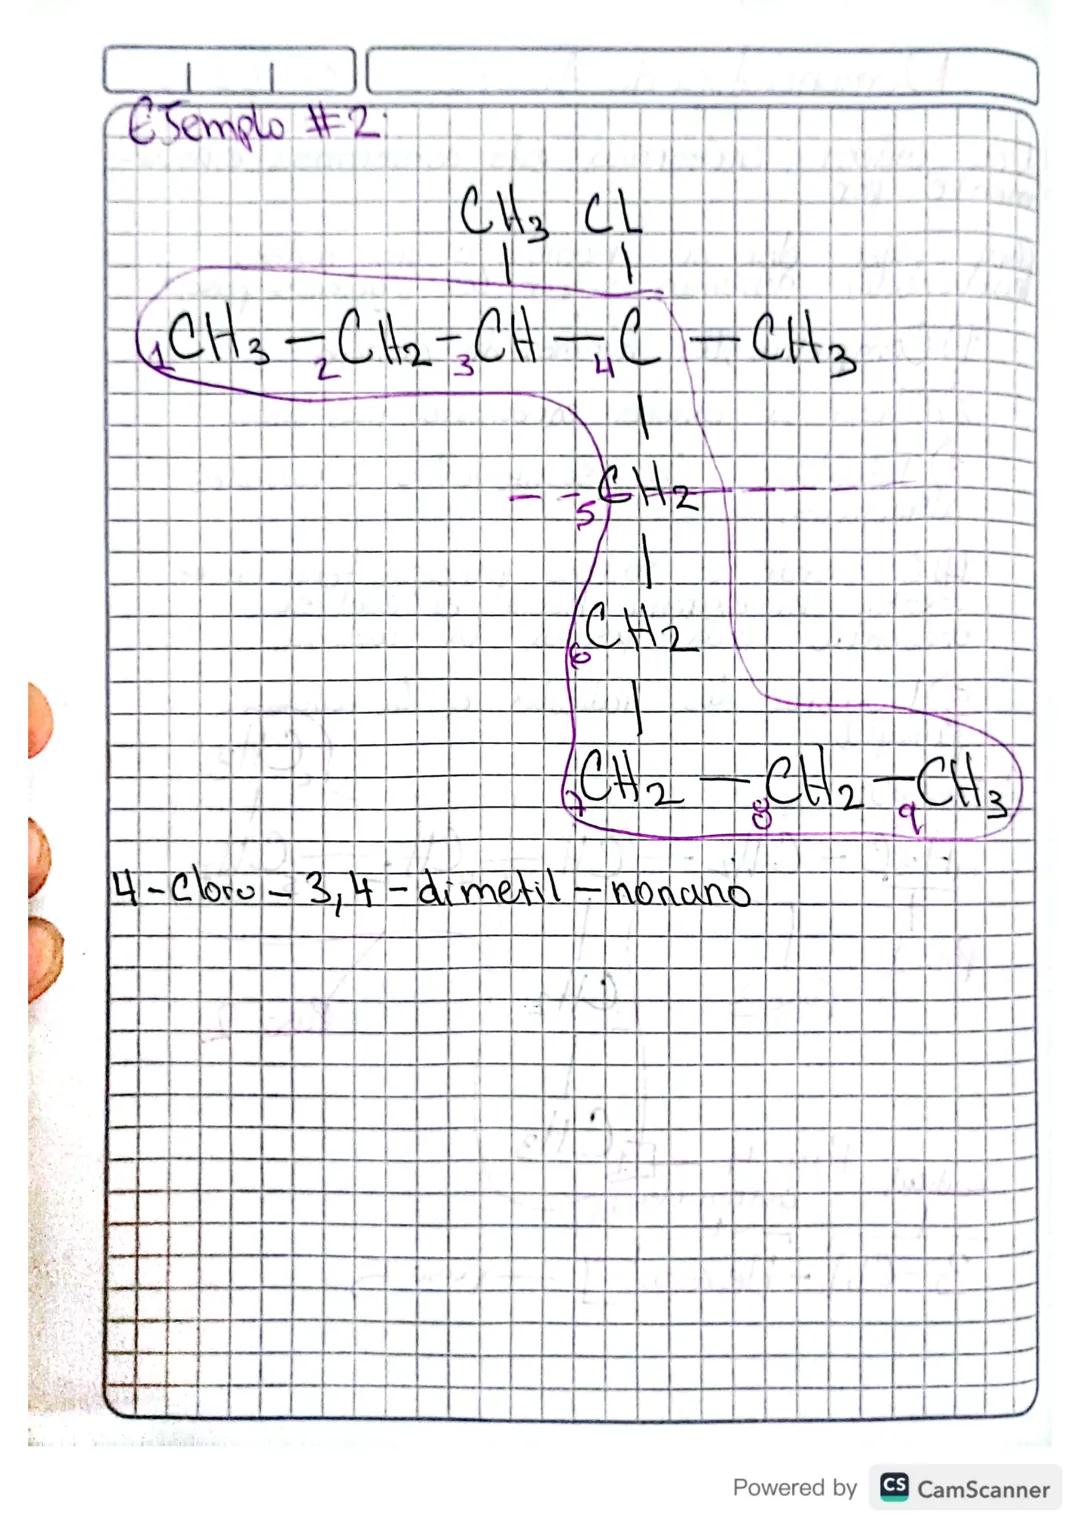 EJemplo #2:
CH3 CL
| |
1CH3 - 2CH2 - 3CH - 4C - CH3
|
5CH2
|
6CH2
|
7CH2 - 8CH2 - 9CH3
4-Cloro-3,4-dimetil-nonano
Powered by CS CamScanner